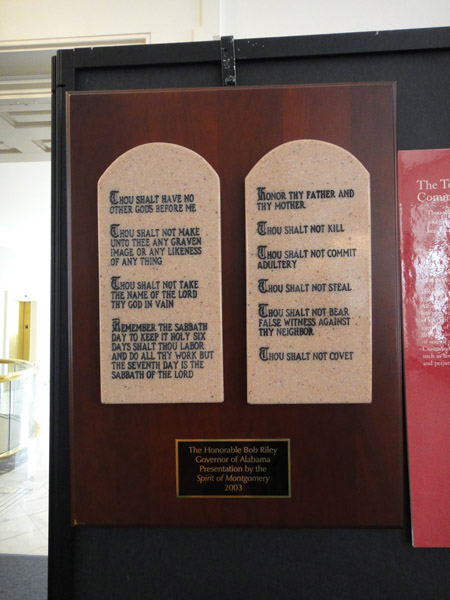 THOU SHALT HAVE NO
OTHER GODS BEFORE ME
THOU SHALT NOT MAKE
UNTO THEE ANY GRAVEN
IMAGE OR ANY LIKENESS
OF ANY THING
THOU SHALT NOT TAKE
THE NAME OF THE LORD
THY GOD IN VAIN
REMEMBER THE SABBATH
DAY TO KEEP IT HOLY SIX
DAYS SHALT THOU LABOR
AND DO ALL THY WORK BUT
THE SEVENTH DAY IS THE
SABBATH OF THE LORD
HONOR THY FATHER AND
THY MOTHER
THOU SHALT NOT KILL
THOU SHALT NOT COMMIT
ADULTERY
THOU SHALT NOT STEAL
THOU SHALT NOT BEAR
FALSE WITNESS AGAINST
THY NEIGHBOR
THOU SHALT NOT COVET
The Honorable Bob Riley
Governor of Alabama
Presentation by the
Spirit of Montgomery
2003
The